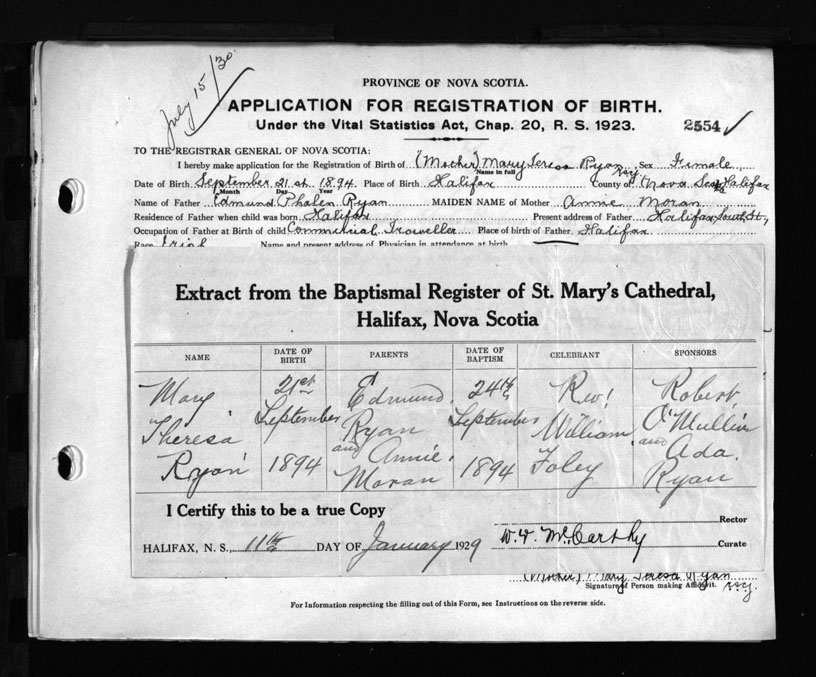 July 15/30.
PROVINCE OF NOVA SCOTIA.
APPLICATION FOR REGISTRATION OF BIRTH.
Under the Vital Statistics Act, Chap. 20, R. S. 1923.
2554
TO THE REGISTRAR GENERAL OF NOVA SCOTIA:
I hereby make application for the Registration of Birth of (Mother) Mary Teresa Ryan rscj. Sex Female
Name in full
Date of Birth September 21st 1894 Place of Birth Halifax County of Nova Scotia Halifax
Month Day Year
Name of Father Edmund Phalen Ryan MAIDEN NAME of Mother Annie Moran
Residence of Father when child was born Halifax Present address of Father Halifax, South St,
Occupation of Father at Birth of child Commercial Traveller Place of birth of Father Halifax.
Race Irish Name and present address of Physician in attendance at birth
Extract from the Baptismal Register of St. Mary's Cathedral,
Halifax, Nova Scotia
NAME DATE OF BIRTH PARENTS DATE OF BAPTISM CELEBRANT SPONSORS
Mary 21st Edmund 24th Rev. Robert
Theresa September Ryan September William O'Mullin
and and
Ryan 1894 Annie Moran 1894 Foley Ada Ryan
I Certify this to be a true Copy
Rector
HALIFAX, N. S., 11th DAY OF January 1929 McCarthy Curate
(Mother) Mary Teresa Ryan rscj.
Signature of Person making Affidavit.
For Information respecting the filling out of this Form, see Instructions on the reverse side.